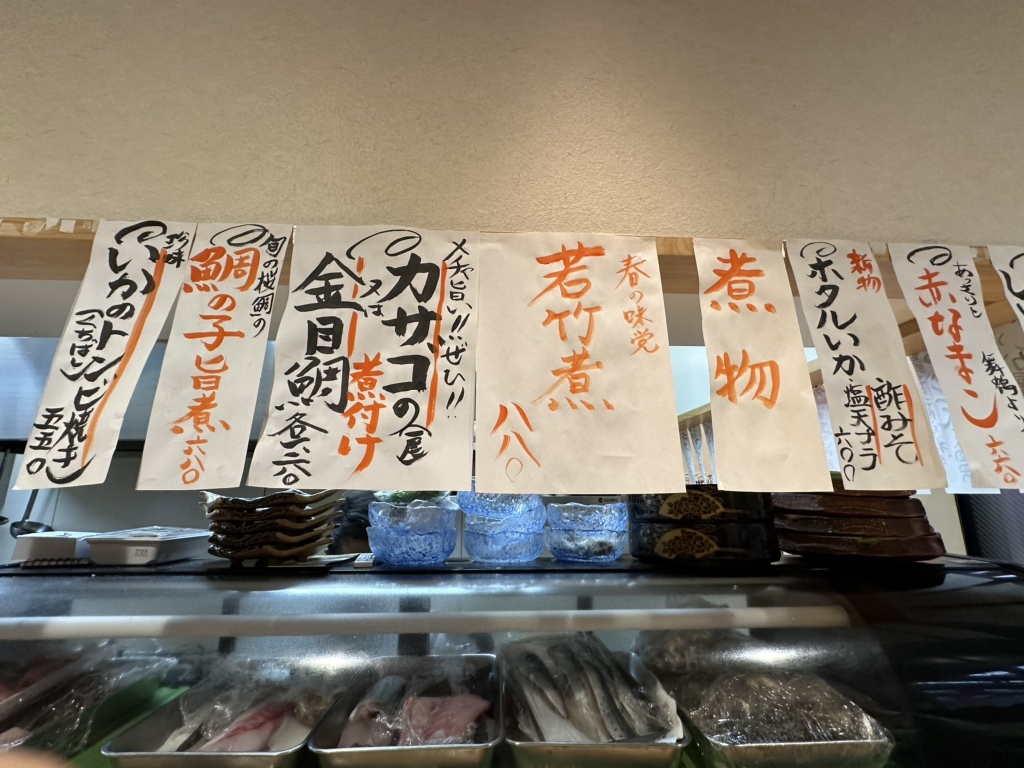 珍味
いかのトンビ焼き
(くちばし)
五五〇
旬の桜鯛の
鯛の子旨煮
六八〇
メチャ旨い!!ぜひ!!
カサゴの
又は
金目鯛
煮付け
各六六〇
春の味覚
若竹煮
八八〇
煮物
新物
ホタルいか
酢みそ
塩天ナラ
六〇〇
あっさりと
赤なまこ
六六〇